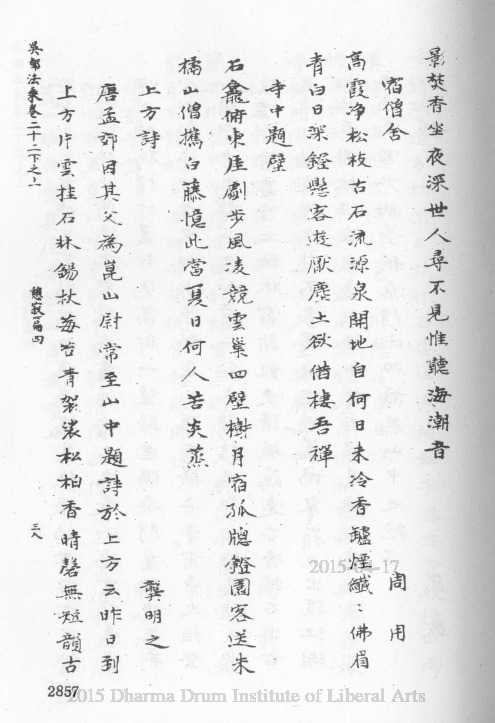 影焚香坐夜深世人尋不見惟聽海潮音
宿僧舍　周用
高霞净松枝古石流源泉開地自何日未冷香罏煙纖纖佛眉
青白日深鐙懸客遊厭塵土欲借棲吾禪
寺中題壁
石龕俯東厓劇步風凌競雲巢四壁樹月宿孤牕鐙園客送朱
橘山僧攜白藤憶此當夏日何人苦炎蒸
上方詩　龔明之
唐孟郊因其父為崑山尉常至山中題詩於上方云昨日到
上方片雲挂石牀錫杖莓苔青袈裟松柏香晴磬無短韻古
吳都法乘卷二十二下之上　憩寂篇四　三八
2857
2015-04-17
2015 Dharma Drum Institute of Liberal Arts